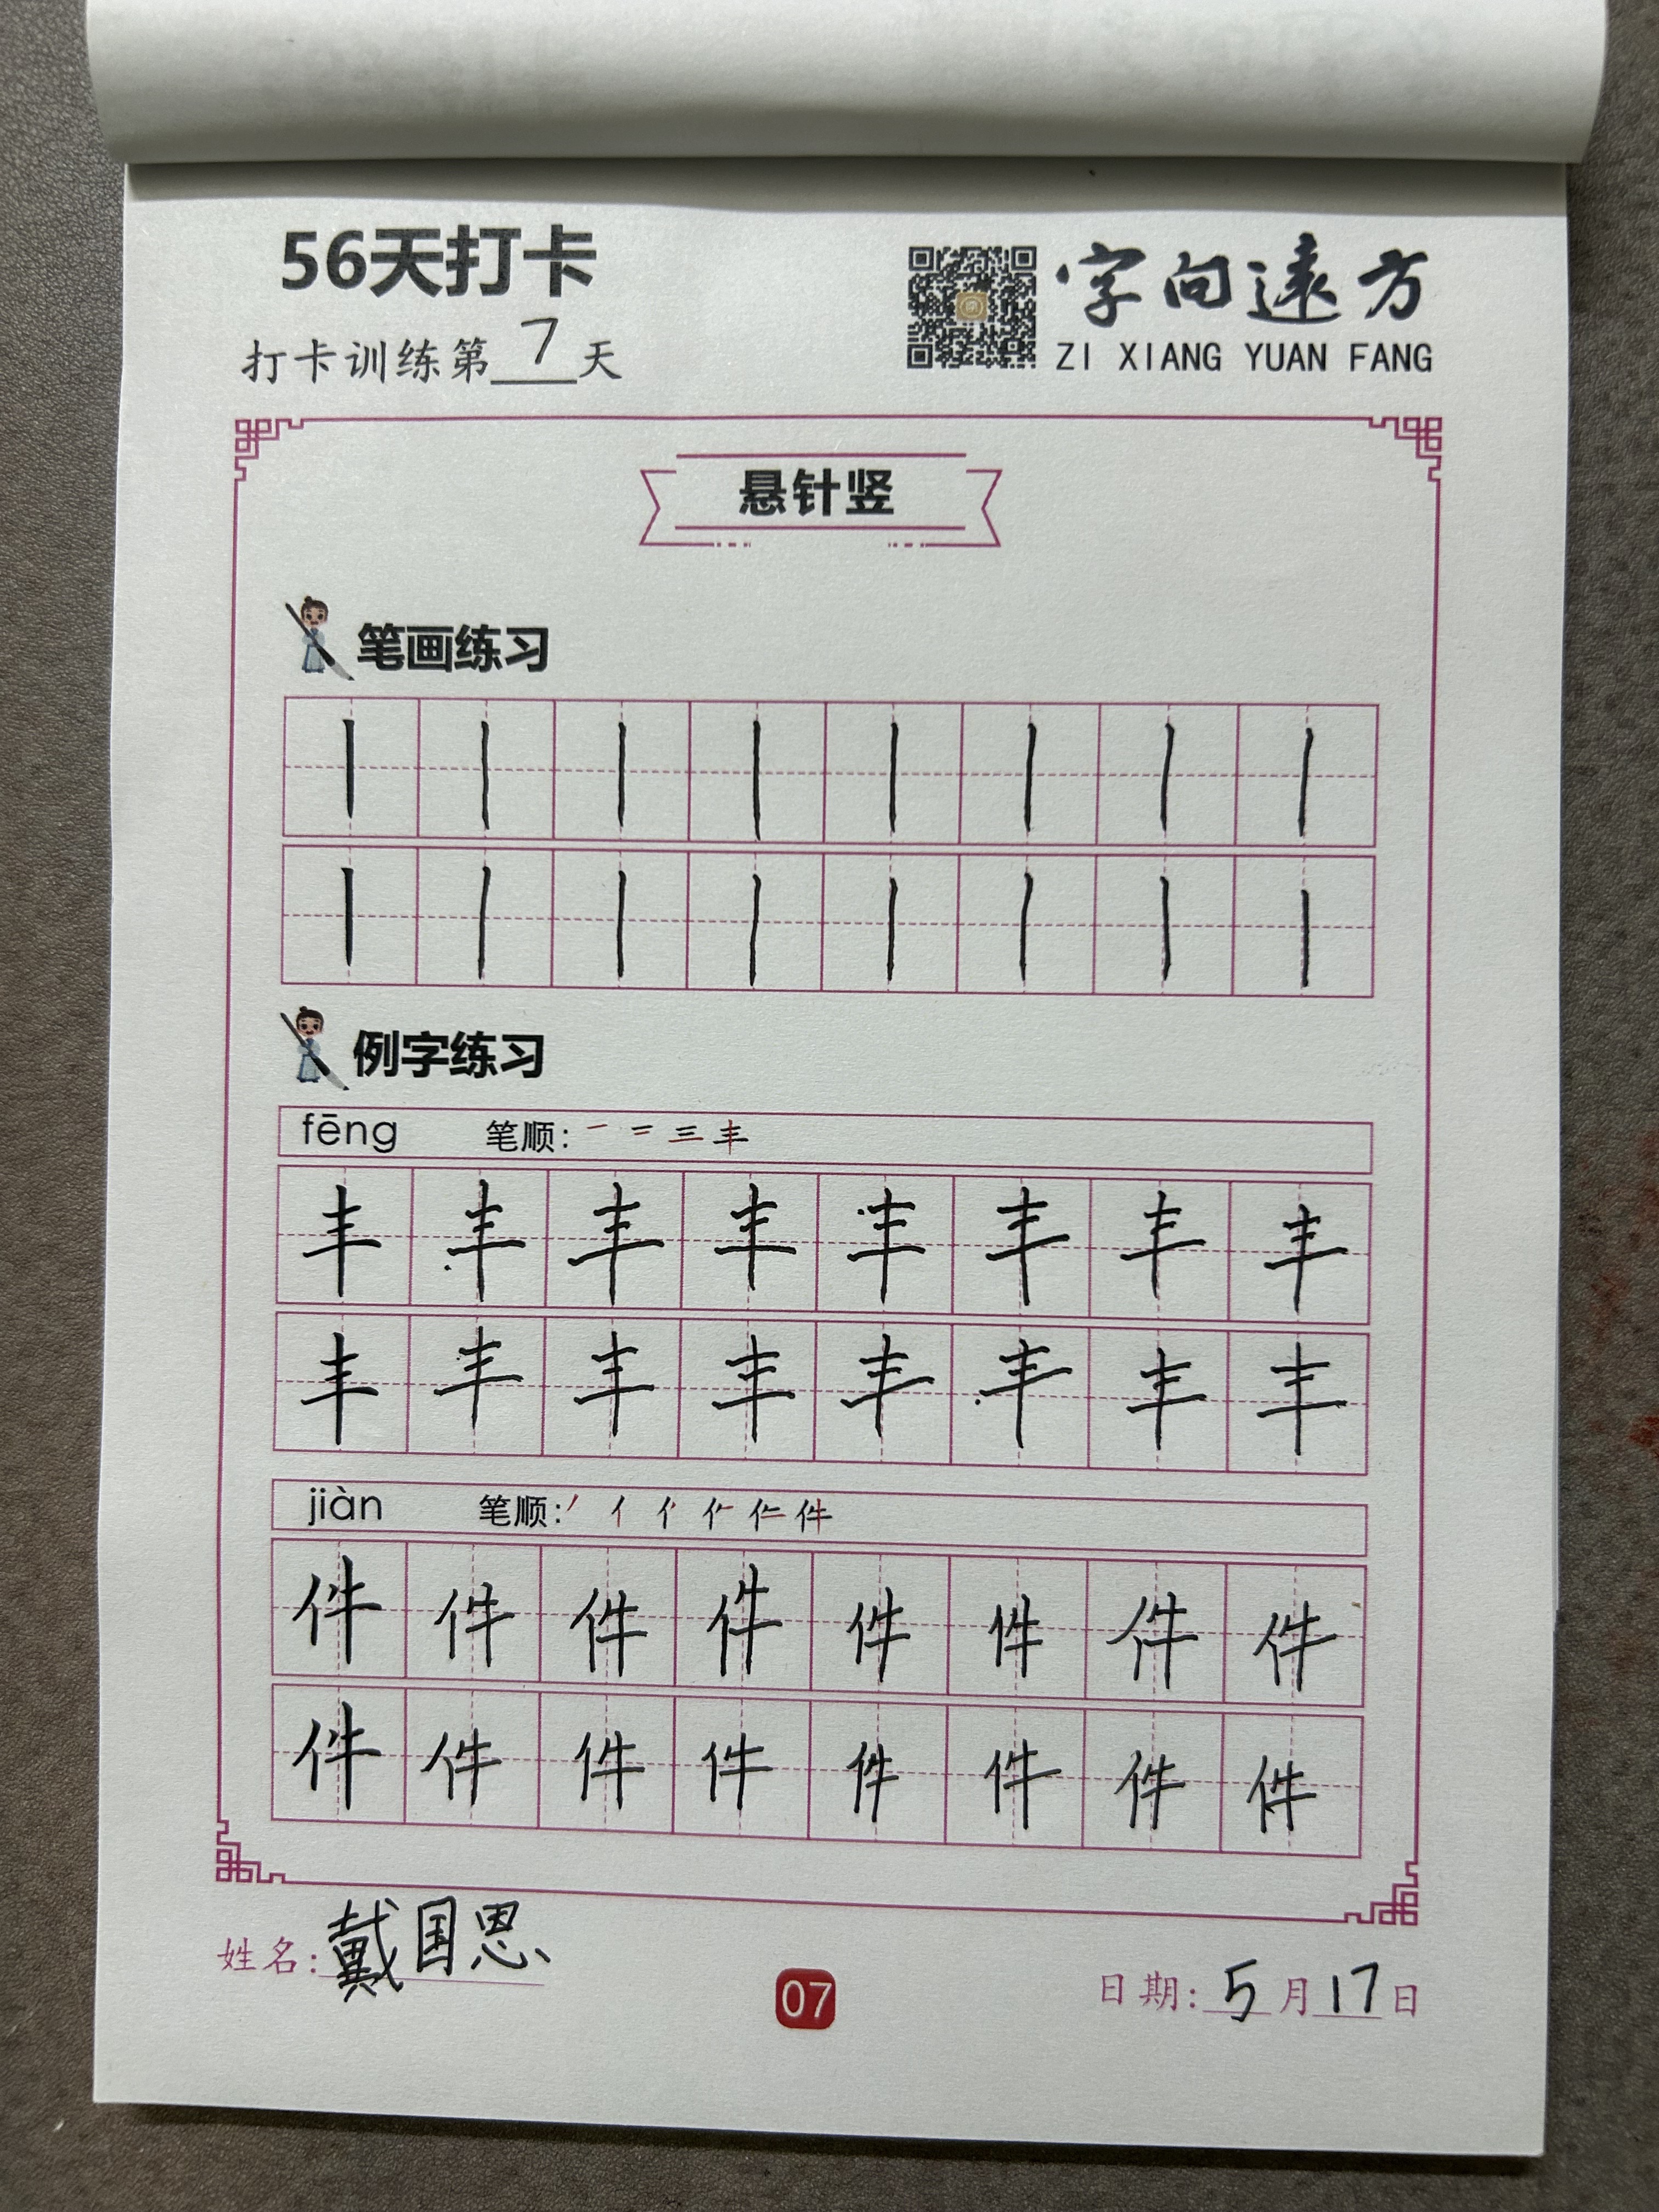 56天打卡
打卡训练第7天
字向遠方
ZI XIANG YUAN FANG
悬针竖
笔画练习
丨 丨 丨 丨 丨 丨 丨 丨
丨 丨 丨 丨 丨 丨 丨 丨
例字练习
fēng 笔顺: 一 二 三 丰
丰 丰 丰 丰 丰 丰 丰 丰
丰 丰 丰 丰 丰 丰 丰 丰
jiàn 笔顺:
件 件 件 件 件 件 件 件
件 件 件 件 件 件 件 件
姓名: 戴国恩
07
日期: 5月17日